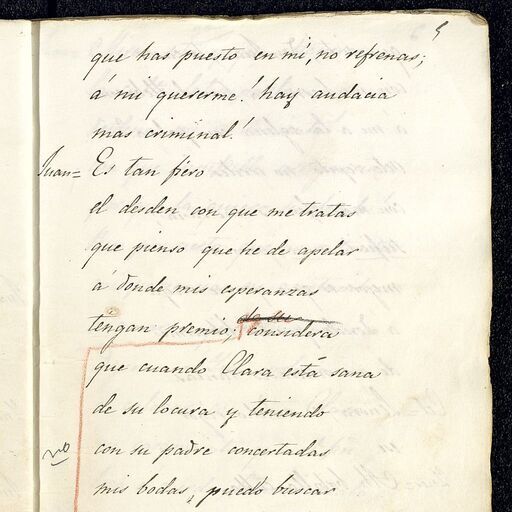 5
que has puesto en mí, no refrenas;
á mi quererme! hay audacia
mas criminal!
Juan= Es tan fiero
el desden con que me tratas
que pienso que he de apelar
á donde mis esperanzas
tengan premio; considera
que cuando Clara está sana
de su locura y teniendo
no
con su padre concertadas
mis bodas, puedo buscar